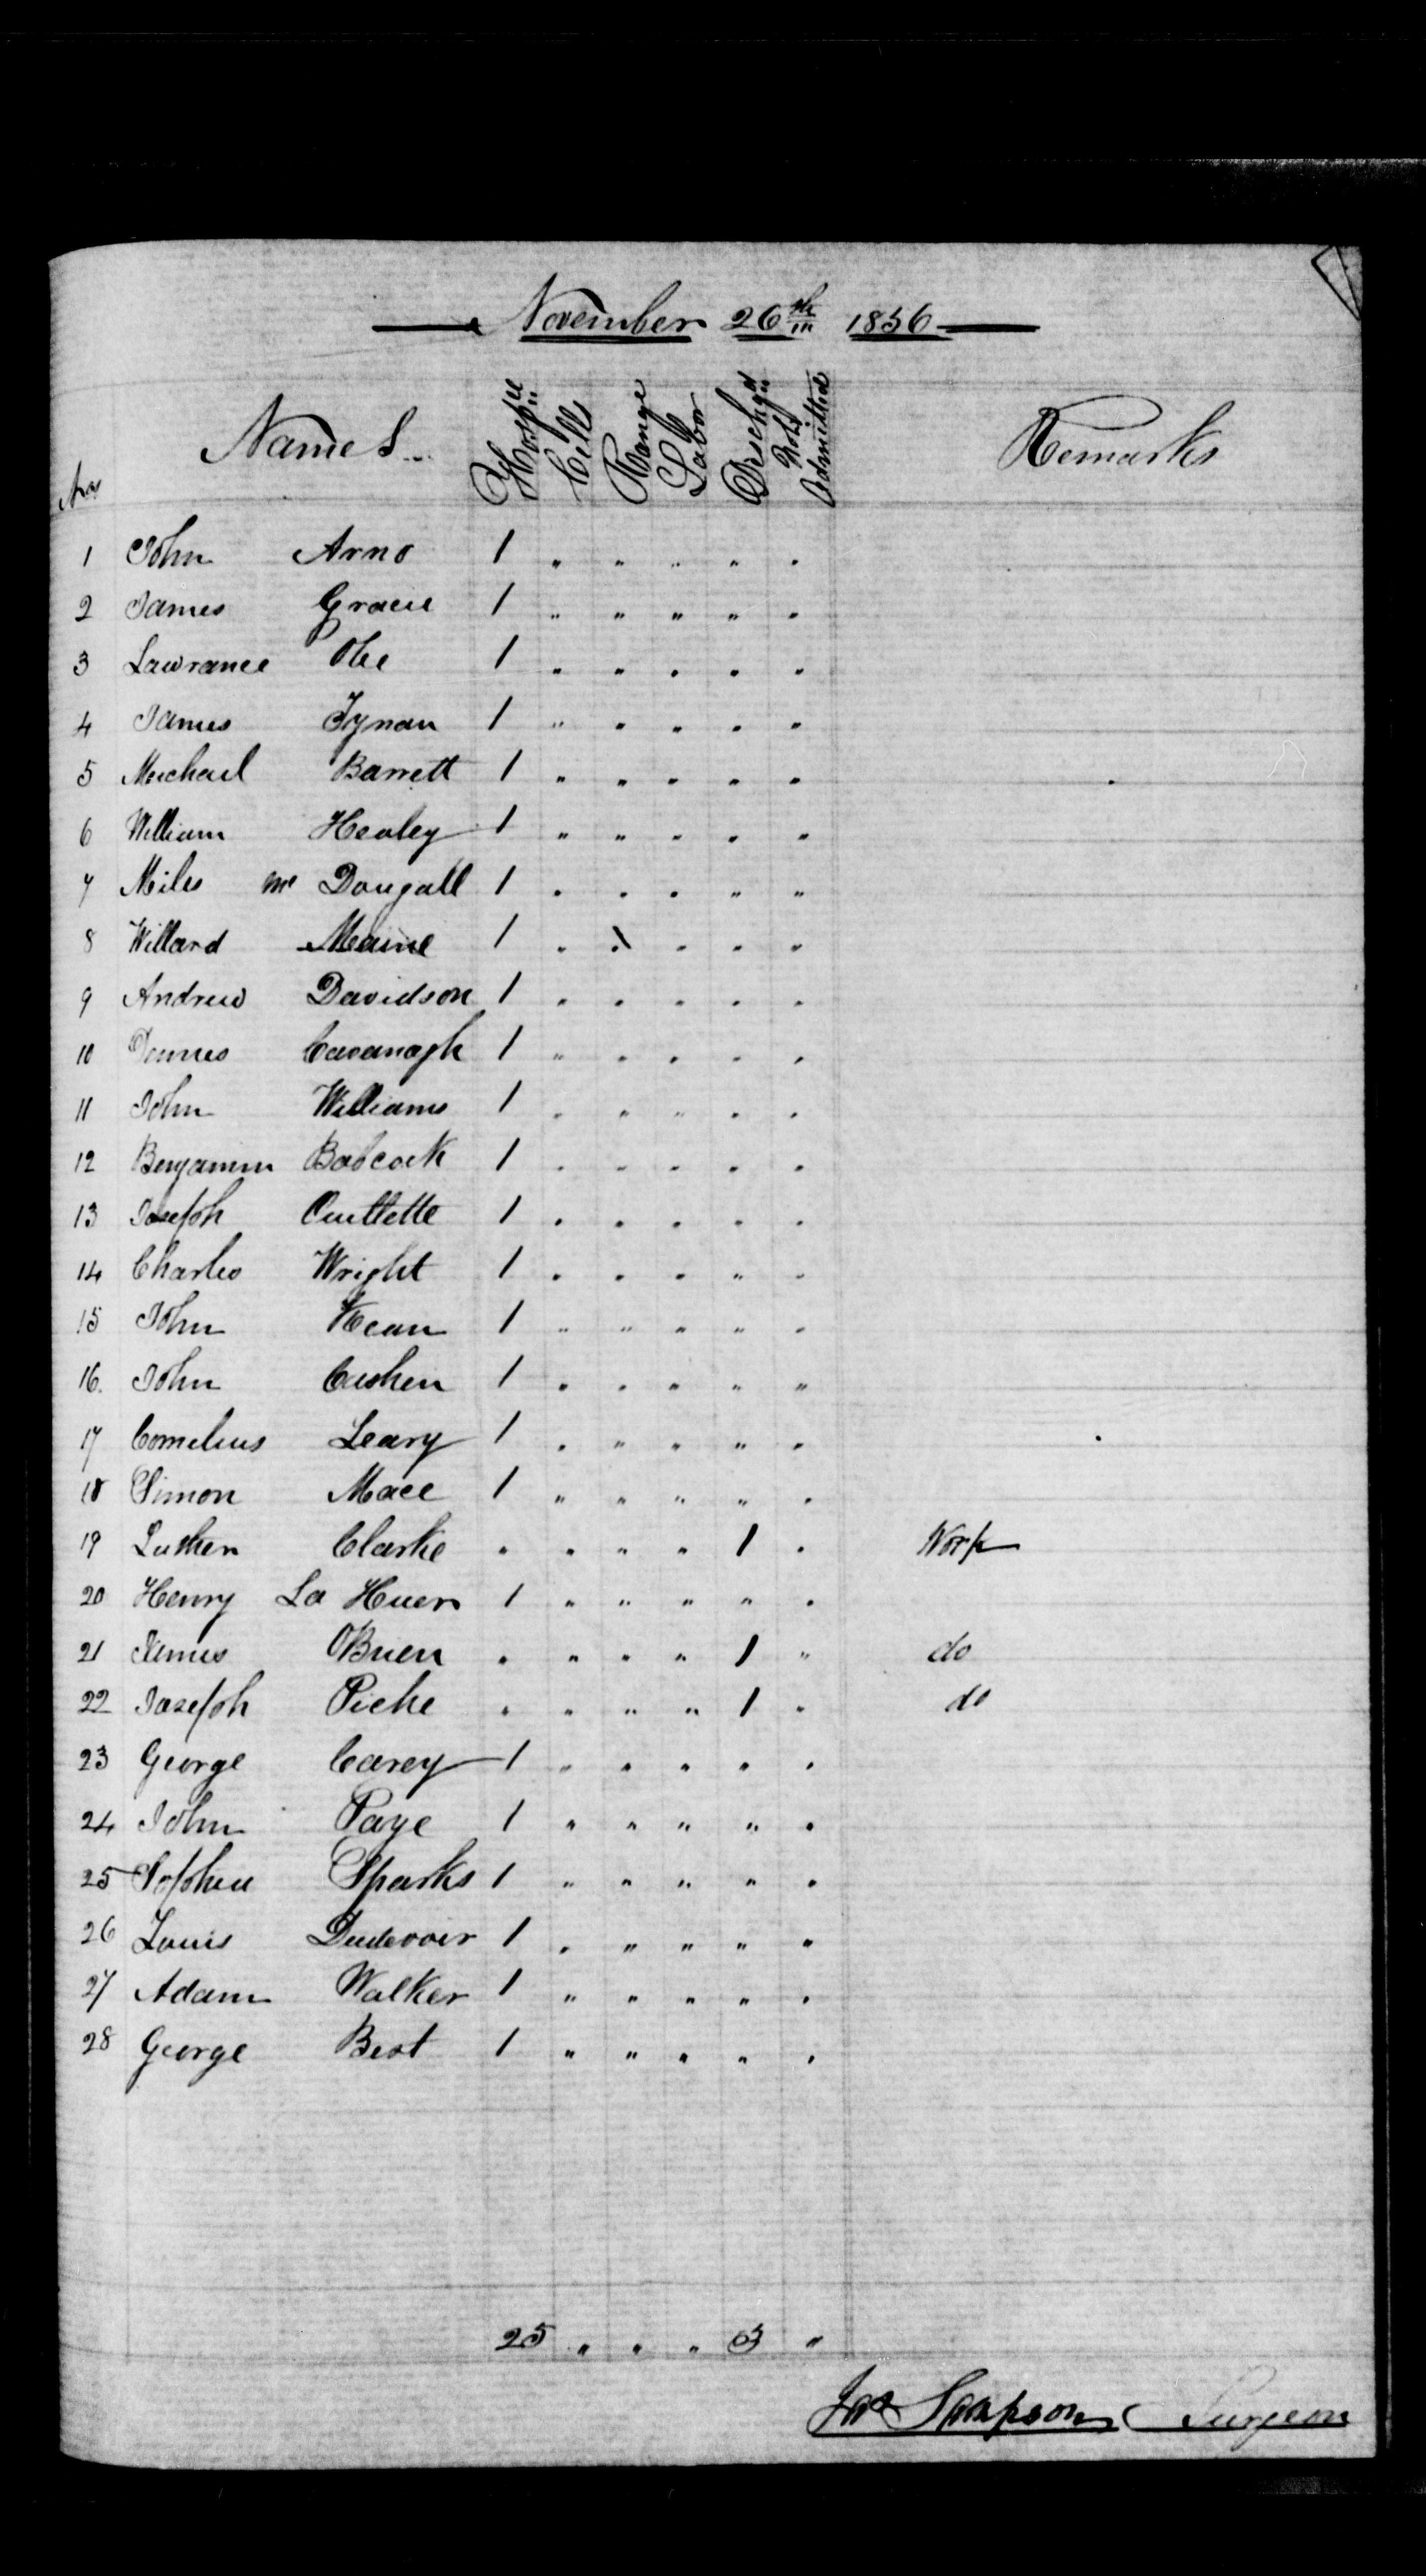 November 26th 1856
Nos Names Hospl Cells Range Labor Dischgd Not Admitted Remarks
1 John Arno 1 " " " " "
2 James Gracie 1 " " " " "
3 Lawrance 1 " " " " "
4 James Tynan 1 " " " " "
5 Michael Barrett 1 " " " " "
6 William Healey 1 " " " " "
7 Miles Mc Dougall 1 " " " " "
8 Willard 1 " " " " "
9 Andrew Davidson 1 " " " " "
10 James Cavanagh 1 " " " " "
11 John Williams 1 " " " " "
12 Benjamin Babcock 1 " " " " "
13 Joseph Ouillette 1 " " " " "
14 Charles Wright 1 " " " " "
15 John Kean 1 " " " " "
16. John Cushen 1 " " " " "
17 Cornelius Leary 1 " " " " "
18 Simon Mace 1 " " " " "
19 Luther Clarke " " " " 1 " Work
20 Henry La Huer 1 " " " " "
21 James OBrien " " " " 1 " do
22 Joseph Piche " " " " 1 " do
23 George Carey 1 " " " " "
24 John Page 1 " " " " "
25 Sparks 1 " " " " "
26 Louis Dudevoir 1 " " " " "
27 Adam Walker 1 " " " " "
28 George Best 1 " " " " "
25 " " " 3 "
Jas Sampson Surgeon